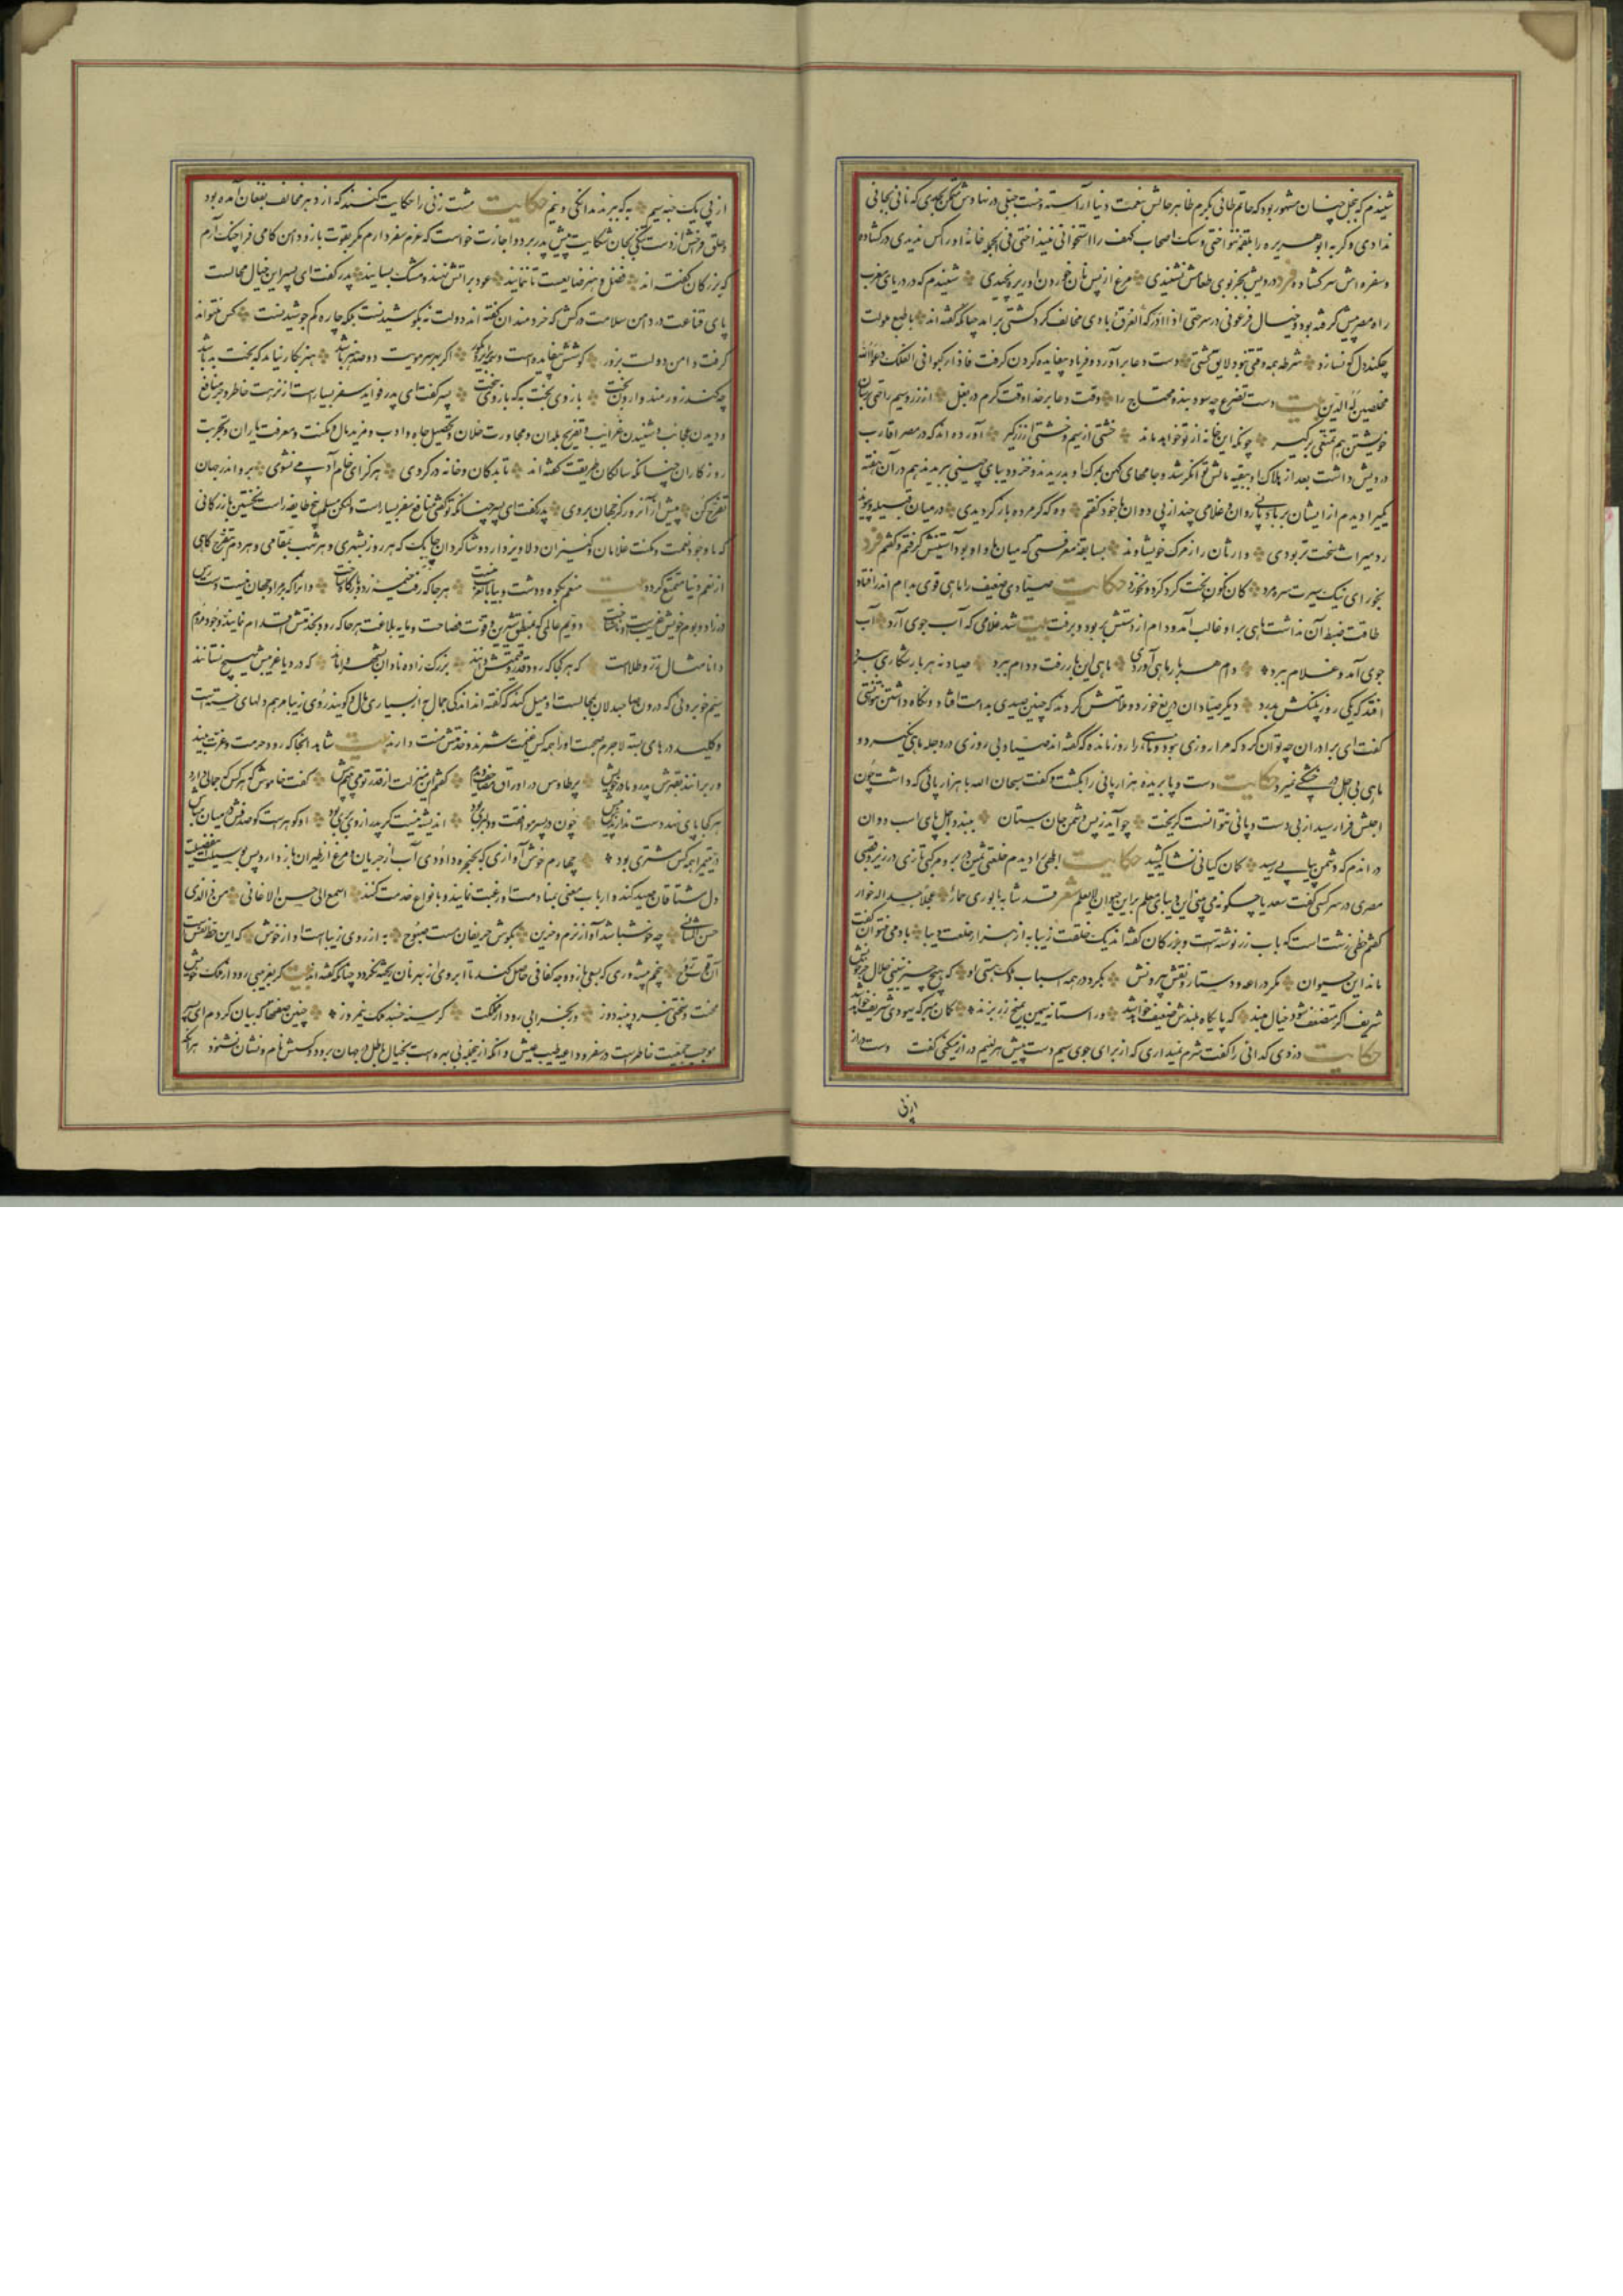 شنیدم که ببخل چنان مشهور بود که حاتم طائی بکرم ظاهر حالش بنعمت دنیا آراسته و خست جبلی در نهادش متمکن بحدی که نانی بجانی
ندادی و گربه ابوهریره را بلقمه ننواختی و سک اصحاب کهف را استخوانی نینداختی فی الجمله خانه او را کس ندیدی در کشاده
و سفره اش سر کشاده فرد درویش بجز بوی طعامش نشنیدی مرغ از پس نان خوردن او ریزه نچیدی شنیدم که در دریای مغرب
راه مصر پیش گرفته بود و خیال فرعونی در سر حتی اذا ادرکه الغرق بادی مخالف کرد کشتی برآمد چنانکه گفته اند با طبع ملولت
چکند دل که نسازد شرطه همه وقتی نبود لایق کشتی دست دعا برآورد و فریاد بیفایده کردن گرفت فاذا رکبوا فی الفلک دعوا الله
مخلصین له الدین بیت دست تضرع چه سود بنده محتاج را وقت دعا بر خدا وقت کرم در بغل از زر و سیم راحتی برسان
خویشتن هم تمتعی برگیر چونکه این خانه از تو خواهد ماند خشتی از سیم و خشتی از زر گیر آورده اند که در مصر اقارب
درویش داشت بعد از هلاک او ببقیه مالش توانگر شدند و جامهای کهن بمرک او بدریدند و خز و دیبای چینی ببریدند هم در آن هفته
یکی را دیدم از ایشان بر بادپائی روان و غلامی چند از پی دوان با خود گفتم وه که گر مرده باز گردیدی در میان قبیله و پیوند
رد میراث سخت تر بودی وارثان را ز مرک خویشاوند بسابقه معرفتی که میان ما و او بود آستینش گرفتم و گفتم فرد
بخور ای نیک سیرت سره مرد کان نگون بخت گرد کرد و نخورد حکایت صیادی ضعیف را ماهی قوی بدام اندر افتاد
طاقت ضبط آن نداشت ماهی بر او غالب آمد و دام از دستش بربود و برفت بیت شد غلامی که آب جوی آرد آب
جوی آمد و غلام ببرد دام هر بار ماهی آوردی ماهی این بار رفت و دام ببرد صیاد نه هر بار شکاری ببرد
افتد که یکی روز پلنکش بدرد دیگر صیادان دریغ خوردند و ملامتش کردند که چنین صیدی بدامت افتاد و نگاه داشتن نتوانستی
گفت ای برادران چه توان کرد که مرا روزی نبود و ماهی را روز مانده که گفته اند صیاد بی روزی در دجله ماهی نگیرد و
ماهی بی اجل در خشکی نمیرد حکایت دست و پا بریده هزارپائی را بکشت و گفت سبحان الله با هزار پائی که داشت چون
اجلش فرا رسید از بی دست و پائی نتوانست گریخت چو آید ز پس دشمن جان ستان ببندد اجل پای اسب دوان
در اندم که دشمن پیاپی رسید کمان کیانی نشاید کشید حکایت ابلهی را دیدم خلعتی ثمین در بر و مرکبی تازی در زیر و قصبی
مصری در سر کسی گفت سعدیا چگونه می بینی این دیبای معلم بر این حیوان لایعلم شعر قد شابه بالوری حمار عجلا جسدا له خوار
گفتم خطی زشت است که باب زر نوشته است و بزرگان گفته اند یک خلقت زیبا به از هزار خلعت دیبا بادمی نتوان گفت
ماند این حیوان مگر دراعه و دستار و نقش بیرونش بگرد در همه اسباب ملک هستی او که هیچ چیز نبینی حلال جز خونش
شریف اگر متضعف شود خیال مبند که پایگاه بلندش ضعیف خواهد شد ور آستانه سیمین بمیخ زر بزند گمان مبر که یهودی شریف خواهد شد
حکایت دزدی گدائی را گفت شرم نمیداری که از برای جوی سیم دست پیش هر لئیم دراز میکنی گفت دست دراز
از پی
از پی یک حبه سیم به که ببرند بدانگی و نیم حکایت مشت زنی را حکایت کنند که از دهر مخالف بفغان آمده بود
و حلق فراخش از دست تنگی بجان شکایت پیش پدر برد و اجازت خواست که عزم سفر دارم مگر بقوت بازو دامن کامی فراچنک آرم
که بزرگان گفته اند فضل و هنر ضایعست تا ننمایند عود بر آتش نهند و مشک بسایند پدر گفت ای پسر این خیال محالست
پای قناعت در دامن سلامت درکش که خردمندان گفته اند دولت نه بکوشیدنست بلکه چاره کم جوشیدنست کس نتواند
گرفت دامن دولت بزور کوشش بیفایده است وسمه بر ابروی کور اگر بهر سر مویت دو صد هنر باشد هنر بکار نیاید که بخت بد باشد
چه کند زورمند وارون بخت بازوی بخت به که بازوی سخت پسر گفت ای پدر فواید سفر بسیار است از نزهت خاطر و جر منافع
و دیدن عجائب و شنیدن غرایب و تفرج بلدان و مجاورت خلان و تحصیل جاه و ادب و مزید مال و مکنت و معرفت یاران و تجربت
روزگاران چنانکه سالکان طریقت گفته اند تا بدکان و خانه در گروی هرگز ای خام آدمی نشوی برو اندر جهان
تفرج کن پیش از آن روز کز جهان بروی پدر گفت ای پسر چنانکه تو گفتی منافع سفر بسیار است ولیکن مسلم پنج طایفه راست نخستین بازرگانی
که با وجود نعمت و مکنت غلامان و کنیزان دلاویز دارد و شاگردان چابک که هر روز بشهری و هر شب بمقامی و هر دم بتفرج گاهی
از نعیم دنیا متمتع گردد بیت منعم بکوه و دشت و بیابان غریب نیست هر جا که رفت خیمه زد و بارگاه ساخت وانرا که بر مراد جهان نیست دسترس
در زاد و بوم خویش غریب است و ناشناخت دویم عالمی که بمنطق شیرین و قوت فصاحت و مایه بلاغت هر جا که رود بخدمتش اقدام نمایند وجود مردم
دانا مثال زر و طلاست که هر کجا که رود قدر و قیمتش دانند بزرگ زاده نادان بشهر وا ماند که در دیار غریبش بهیچ نستانند
سیم خوبروئی که درون صاحبدلان بمجالست او میل کند که گفته اند اندکی جمال به از بسیاری مال و گویند روی زیبا مرهم دلهای خسته است
و کلید درهای بسته لاجرم صحبت او را همه کس غنیمت شمرند و خدمتش منت دارند بیت شاهد انجا که رود حرمت و عزت بیند
ور برانند بقهرش پدر و مادر خویش پر طاوس در اوراق مصاحف دیدم گفتم این منزلت از قدر تو می بینم بیش گفت خاموش که هر کس که جمالی دارد
هر کجا پای نهد دست ندارندش پیش چون در پسر موافقت و دلبری بود اندیشه نیست گر پدر از وی بری بود او گوهر است گو صدفش در میان مباش
در یتیم را همه کس مشتری بود چهارم خوش آوازی که بحنجره داودی آب از جریان و مرغ از طیران باز دارد پس بوسیلت این فضیلت
دل مشتاقان صید کند و ارباب معنی بمنادمت او رغبت نمایند و بانواع خدمت کنند سمعی الی حسن الاغانی من ذالذی
حس المثانی چه خوش باشد آواز نرم و حزین بگوش حریفان مست صبوح به از روی زیباست آواز خوش که این حظ نفس است
آن قوت روح پنجم پیشه وری که بسعی بازو وجه کفافی حاصل کند تا آبروی از بهر نان ریخته نگردد چنانکه گفته اند بیت گر بغریبی رود از ملک خویش
محنت و سختی نبرد پنبه دوز ور بخرابی رود از مملکت گرسنه خسبد ملک نیمروز چنین صفتها که بیان کردم ای پسر
موجب جمعیت خاطر است در سفر و داعیه طیب عیش و آنکه از اینجمله بی بهره است بخیال باطل در جهان برود و کسش نام و نشان نشنود هر آنکه